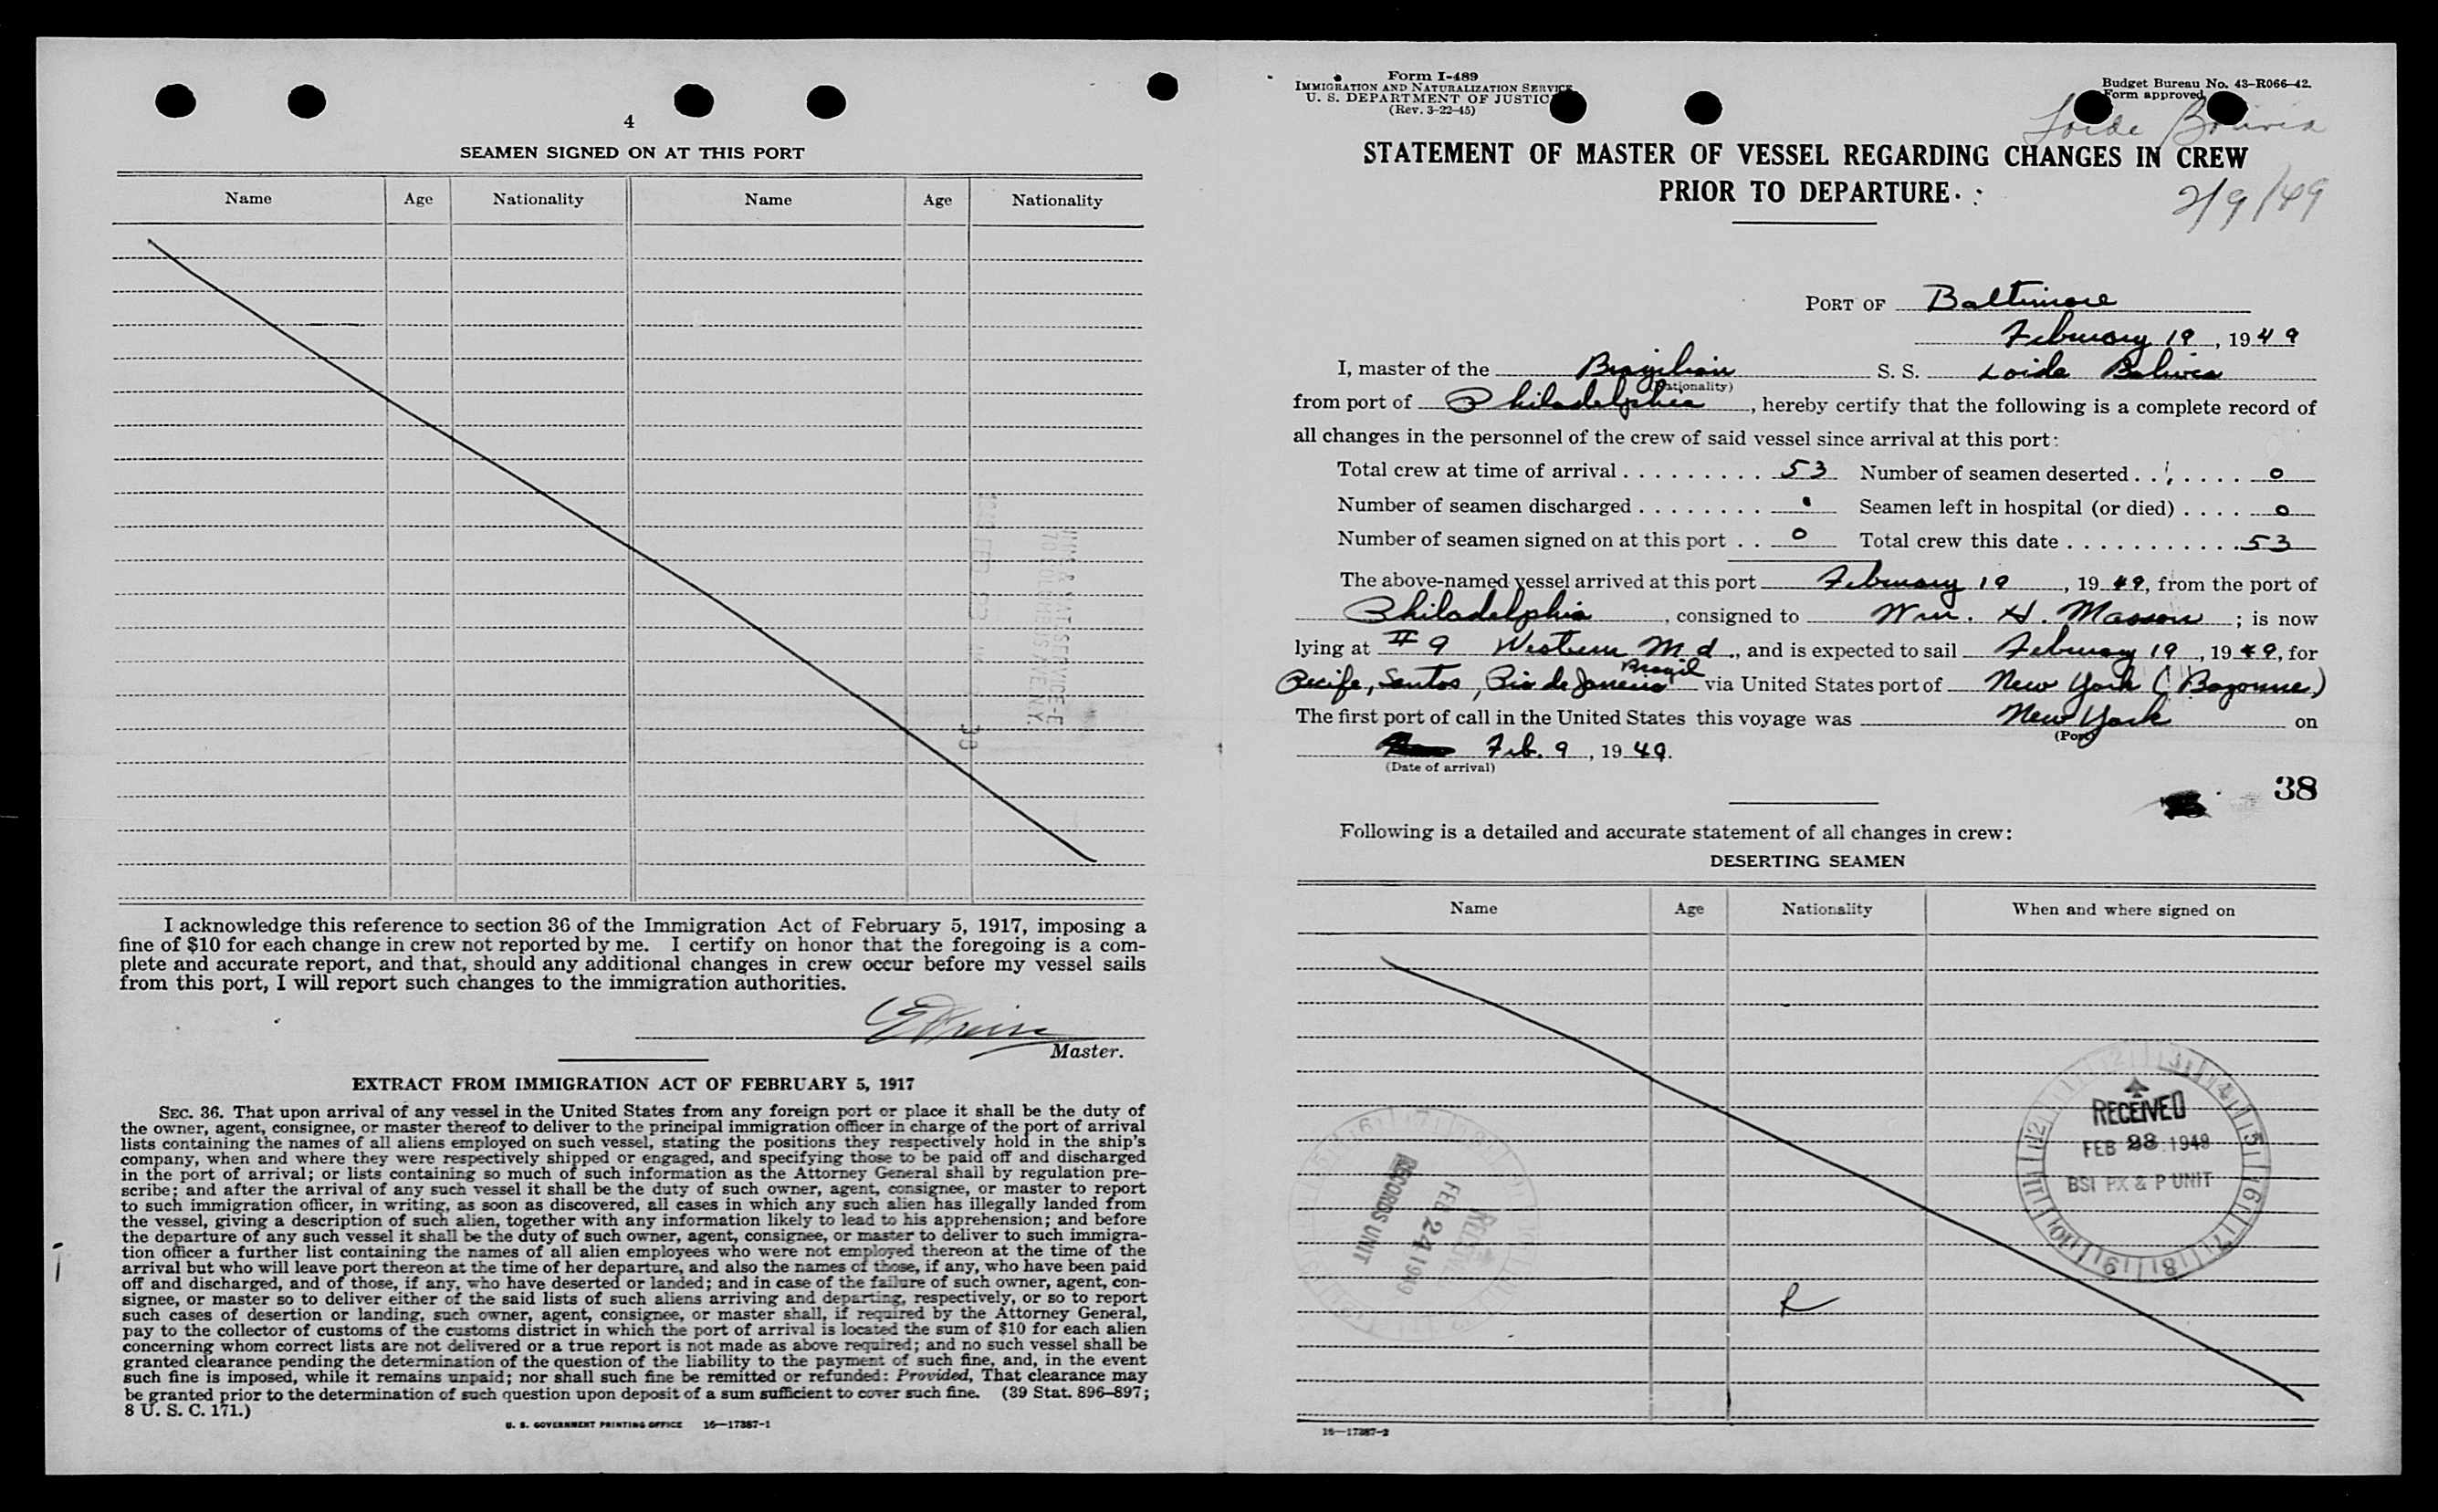 4
SEAMEN SIGNED ON AT THIS PORT
Name Age Nationality Name Age Nationality
I acknowledge this reference to section 36 of the Immigration Act of February 5, 1917, imposing a
fine of $10 for each change in crew not reported by me. I certify on honor that the foregoing is a com-
plete and accurate report, and that, should any additional changes in crew occur before my vessel sails
from this port, I will report such changes to the immigration authorities.
Master.
EXTRACT FROM IMMIGRATION ACT OF FEBRUARY 5, 1917
SEC. 36. That upon arrival of any vessel in the United States from any foreign port or place it shall be the duty of
the owner, agent, consignee, or master thereof to deliver to the principal immigration officer in charge of the port of arrival
lists containing the names of all aliens employed on such vessel, stating the positions they respectively hold in the ship's
company, when and where they were respectively shipped or engaged, and specifying those to be paid off and discharged
in the port of arrival; or lists containing so much of such information as the Attorney General shall by regulation pre-
scribe; and after the arrival of any such vessel it shall be the duty of such owner, agent, consignee, or master to report
to such immigration officer, in writing, as soon as discovered, all cases in which any such alien has illegally landed from
the vessel, giving a description of such alien, together with any information likely to lead to his apprehension; and before
the departure of any such vessel it shall be the duty of such owner, agent, consignee, or master to deliver to such immigra-
tion officer a further list containing the names of all alien employees who were not employed thereon at the time of the
arrival but who will leave port thereon at the time of her departure, and also the names of those, if any, who have been paid
off and discharged, and of those, if any, who have deserted or landed; and in case of the failure of such owner, agent, con-
signee, or master so to deliver either of the said lists of such aliens arriving and departing, respectively, or so to report
such cases of desertion or landing, such owner, agent, consignee, or master shall, if required by the Attorney General,
pay to the collector of customs of the customs district in which the port of arrival is located the sum of $10 for each alien
concerning whom correct lists are not delivered or a true report is not made as above required; and no such vessel shall be
granted clearance pending the determination of the question of the liability to the payment of such fine, and, in the event
such fine is imposed, while it remains unpaid; nor shall such fine be remitted or refunded: Provided, That clearance may
be granted prior to the determination of such question upon deposit of a sum sufficient to cover such fine. (39 Stat. 896–897;
8 U. S. C. 171.)
U. S. GOVERNMENT PRINTING OFFICE 16—17387-1
Form I-489
IMMIGRATION AND NATURALIZATION SERVICE
U. S. DEPARTMENT OF JUSTIC
(Rev. 3-22-45)
Budget Bureau No. 43–R066–42.
Form approved
Loide Bolivia
STATEMENT OF MASTER OF VESSEL REGARDING CHANGES IN CREW
PRIOR TO DEPARTURE
2/9/49
PORT OF Baltimore
February 19, 1949
I, master of the Brazilian S. S. Loide Bolivia
(Nationality)
from port of Philadelphia, hereby certify that the following is a complete record of
all changes in the personnel of the crew of said vessel since arrival at this port:
Total crew at time of arrival . . . . . . . . . . 53 Number of seamen deserted . . . . . . . . 0
Number of seamen discharged . . . . . . . . 0 Seamen left in hospital (or died) . . . . 0
Number of seamen signed on at this port . . 0 Total crew this date . . . . . . . . . . . . 53
The above-named vessel arrived at this port February 19, 1949, from the port of
Philadelphia, consigned to Wm. H. Masson; is now
lying at #9 Western Md., and is expected to sail February 19, 1949, for
Recife, Santos, Rio de Janeiro Brazil via United States port of New York (Bayonne)
The first port of call in the United States this voyage was New York on
(Port)
Feb. 9, 1949.
(Date of arrival)
38
Following is a detailed and accurate statement of all changes in crew:
DESERTING SEAMEN
Name Age Nationality When and where signed on
RECEIVED
FEB 28 1949
BSI PX & P UNIT
RECEIVED
FEB 24 1949
RECORDS UNIT
R
16—17387-2